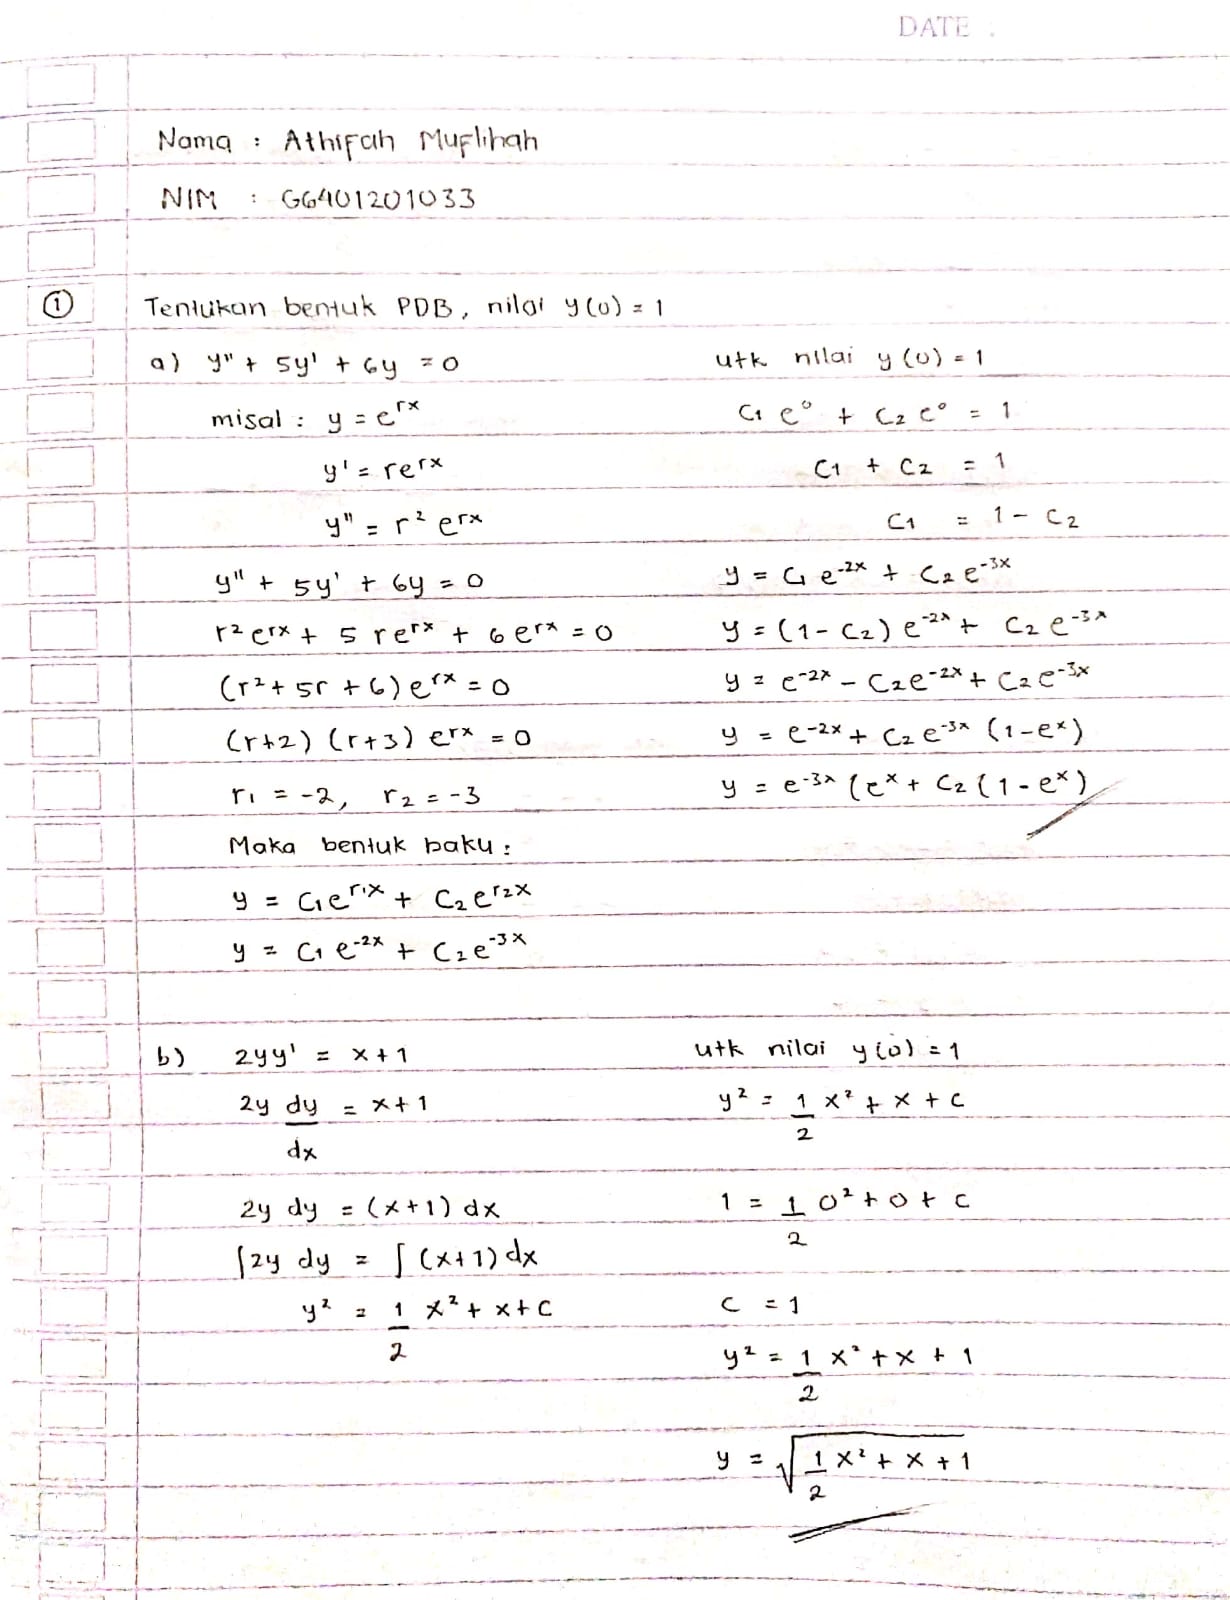 DATE :
Nama : Athifah Muflihah
NIM : G6401201033
① Tentukan bentuk PDB, nilai y(0) = 1
a) y" + 5y' + 6y = 0
misal : y = e^rx
y' = re^rx
y" = r² e^rx
y" + 5y' + 6y = 0
r² e^rx + 5 re^rx + 6 e^rx = 0
(r² + 5r + 6) e^rx = 0
(r+2) (r+3) e^rx = 0
r₁ = -2, r₂ = -3
Maka bentuk baku :
y = C₁e^r₁x + C₂e^r₂x
y = C₁ e^-2x + C₂e^-3x
utk nilai y(0) = 1
C₁ e⁰ + C₂ e⁰ = 1
C₁ + C₂ = 1
C₁ = 1 - C₂
y = C₁ e^-2x + C₂ e^-3x
y = (1 - C₂) e^-2x + C₂ e^-3x
y = e^-2x - C₂e^-2x + C₂e^-3x
y = e^-2x + C₂ e^-3x (1-e^x)
y = e^-3x (e^x + C₂ (1 - e^x)
b) 2yy' = x+1
2y dy/dx = x+1
2y dy = (x+1) dx
∫2y dy = ∫ (x+1) dx
y² = 1/2 x² + x + C
utk nilai y(0) = 1
y² = 1/2 x² + x + C
1 = 1/2 0² + 0 + C
C = 1
y² = 1/2 x² + x + 1
y = √(1/2 x² + x + 1)